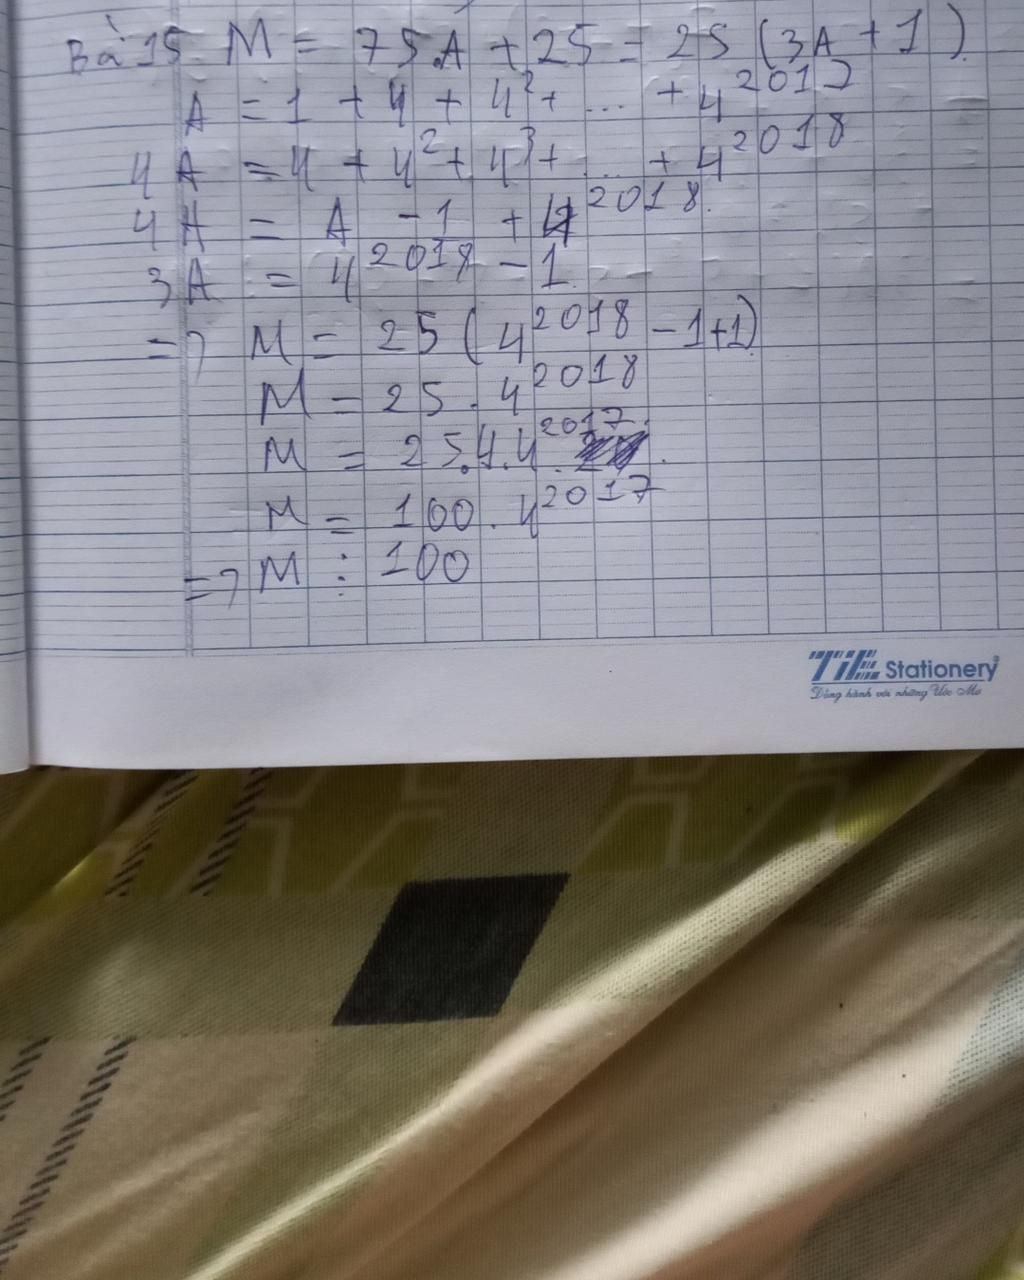 Bà 15 M = 75.A + 25 = 25 (3A + 1).
A = 1 + 4 + 4² + ... + 4²⁰¹⁷
4A = 4 + 4² + 4³ + ... + 4²⁰¹⁸
4A = A - 1 + 4²⁰¹⁸.
3A = 4²⁰¹⁸ - 1
=> M = 25 (4²⁰¹⁸ - 1+1)
M = 25 . 4²⁰¹⁸
M = 25.4.4²⁰¹⁷.
M = 100 . 4²⁰¹⁷
=> M ⋮ 100
TiE Stationery
Đồng hành với những Ước Mơ